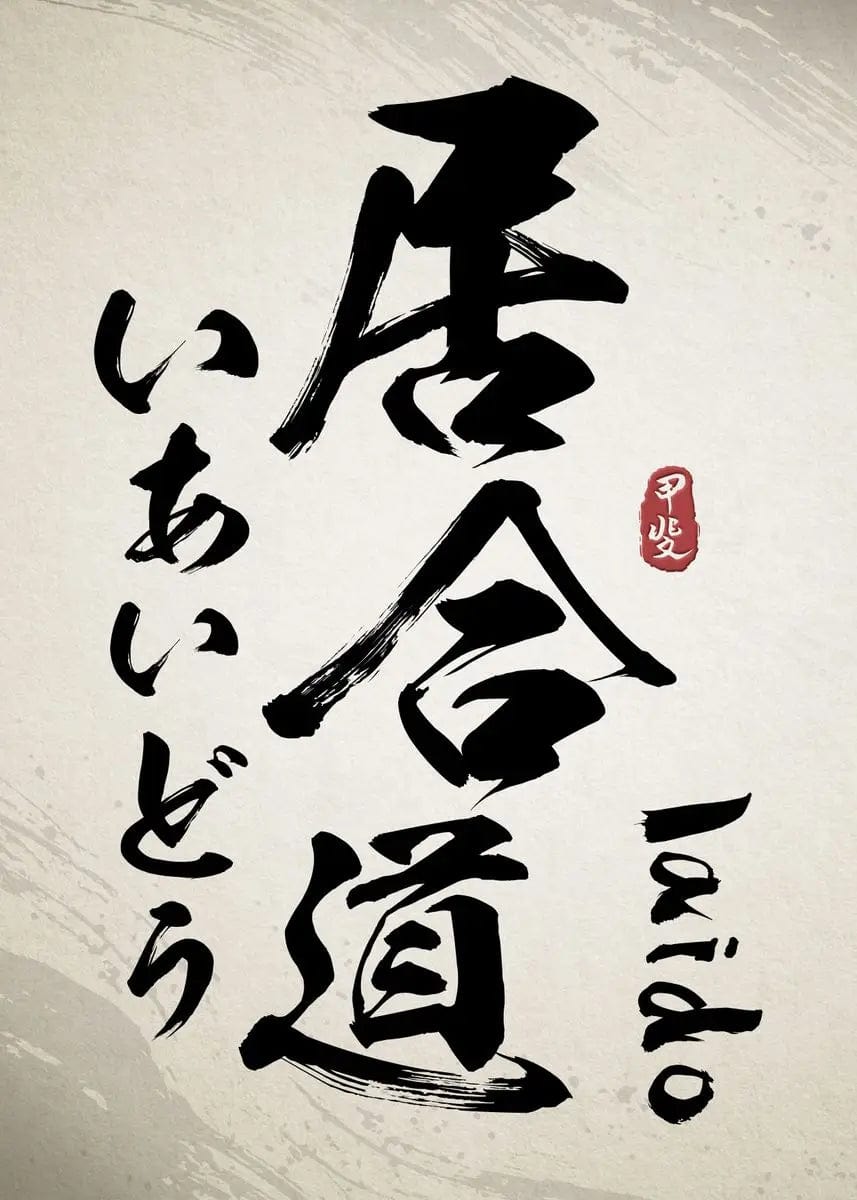 甲斐
Iaido
居合道
いあいどう